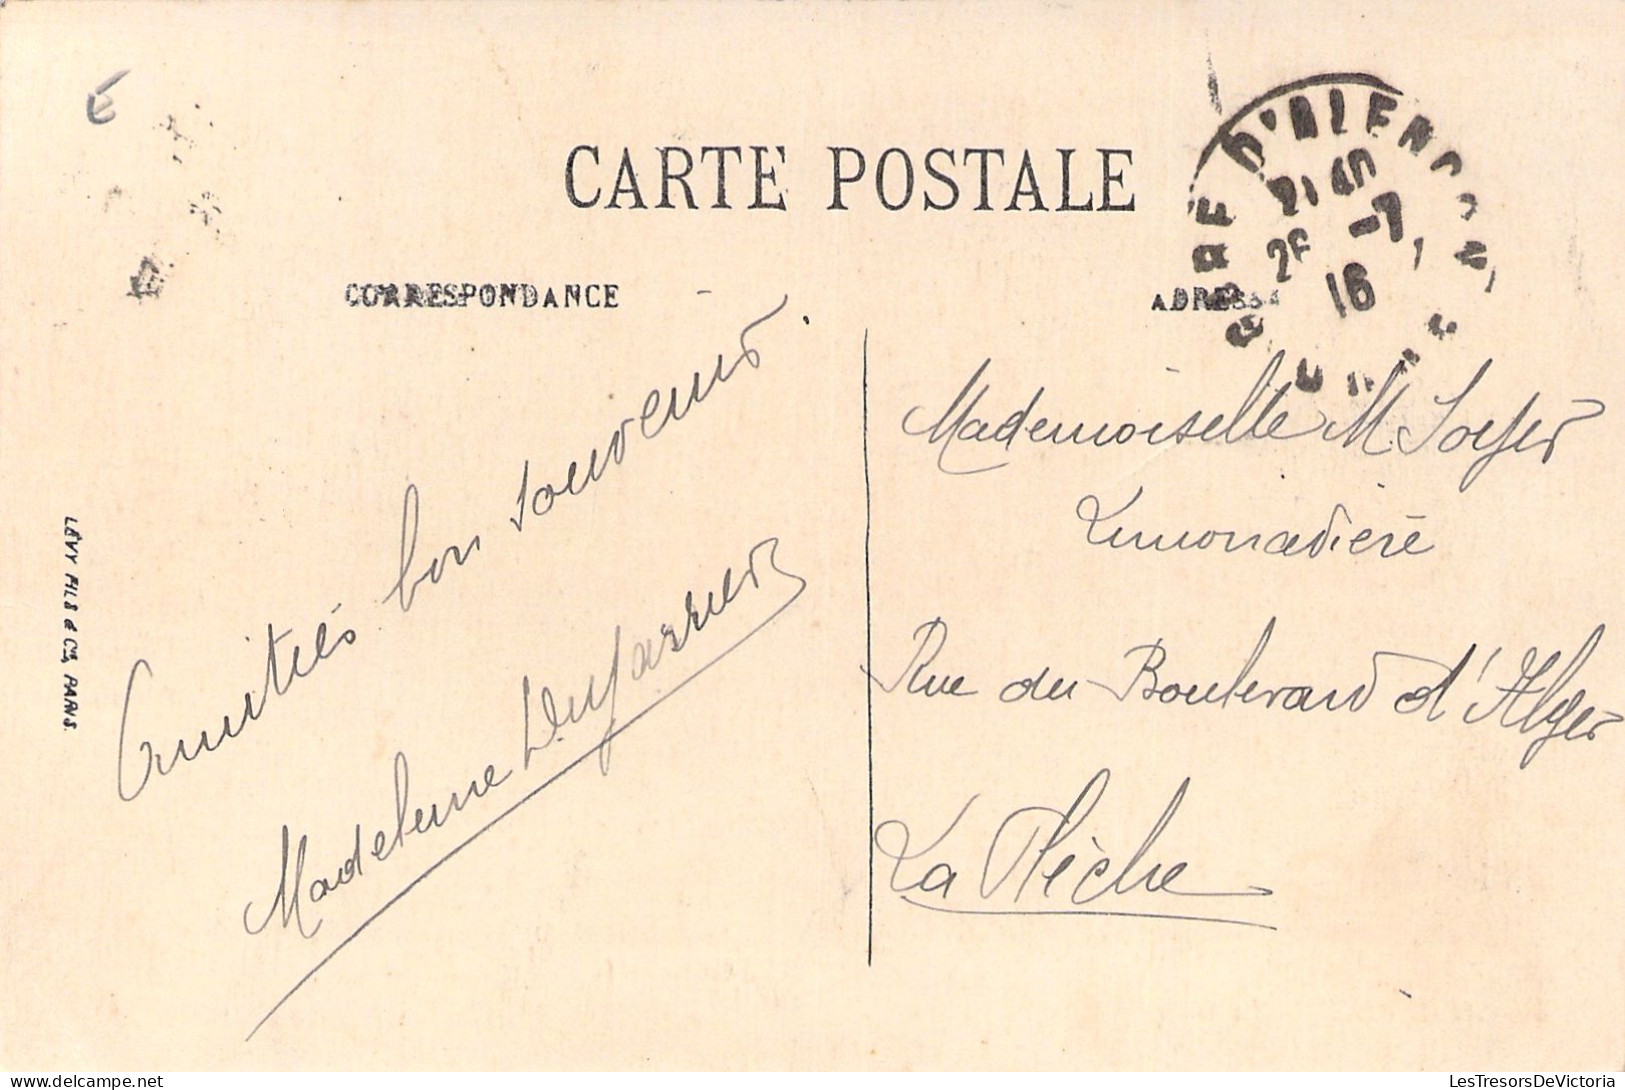 CARTE POSTALE
CORRESPONDANCE
ADRESSE
GARE D'ALENCON
21 45
26 -7
16
ORNE
Amitiés bon souvenir.
Madeleine
Mademoiselle M Soyer
Limonadière
Rue du Boulevard d'Alger
La Flèche
LÉVY FILS & Cie, PARIS.
LesTresorsDeVictoria